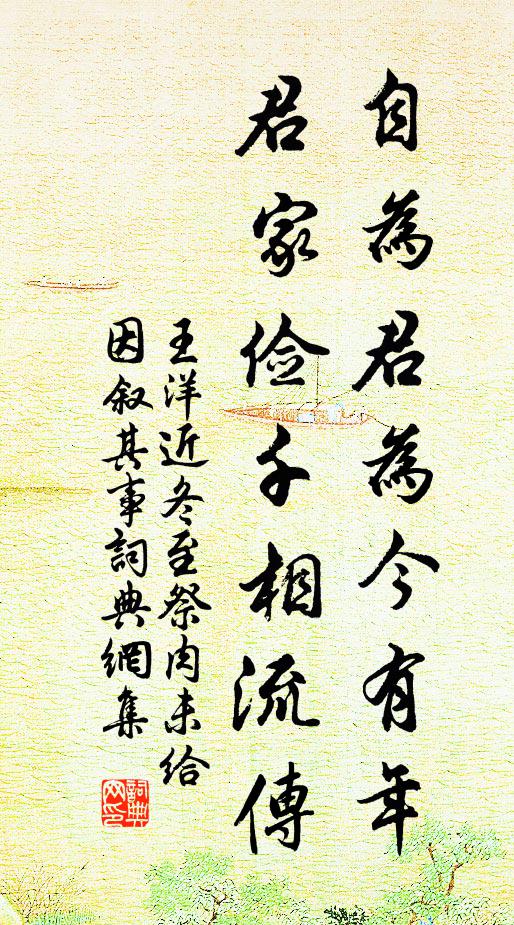 自為君為今有年
君家儉千相流傳
王洋近冬至祭肉未給
因叙其事詞典網集
詞典
网印